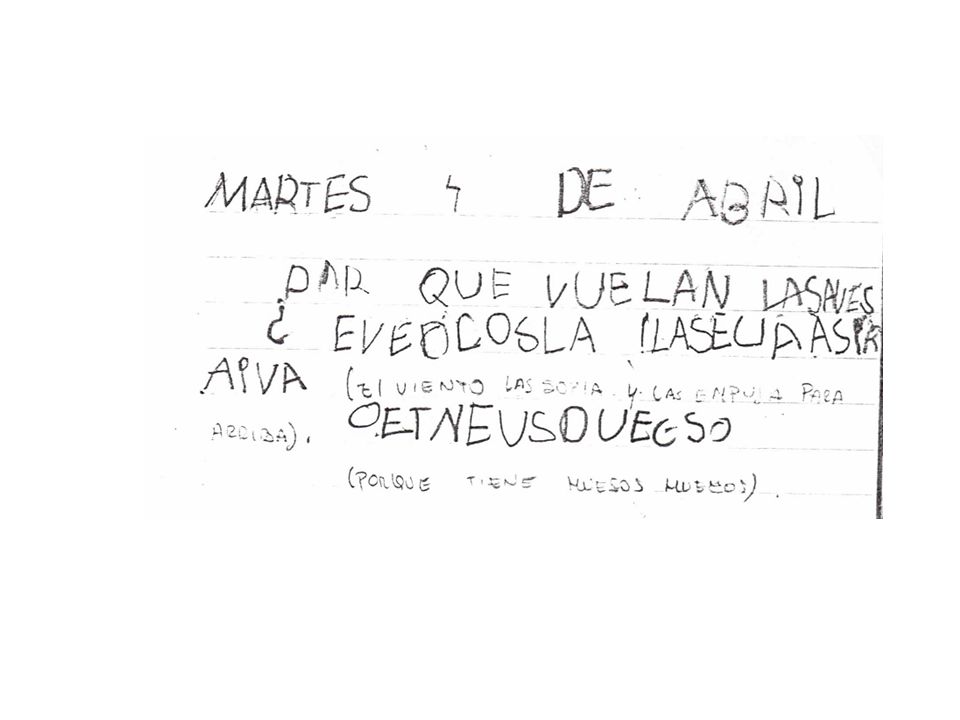 MARTES 4 DE ABRIL
PAR QUE VUELAN LASAVES
¿ EVEDCOSLA ILASEUAASPA
AIVA (El VIENTO LAS SOPLA Y LAS EMPUJA PARA
ARRIBA).
OETNEUSOUEGSO
(PORQUE TIENE HUESOS HUECOS).